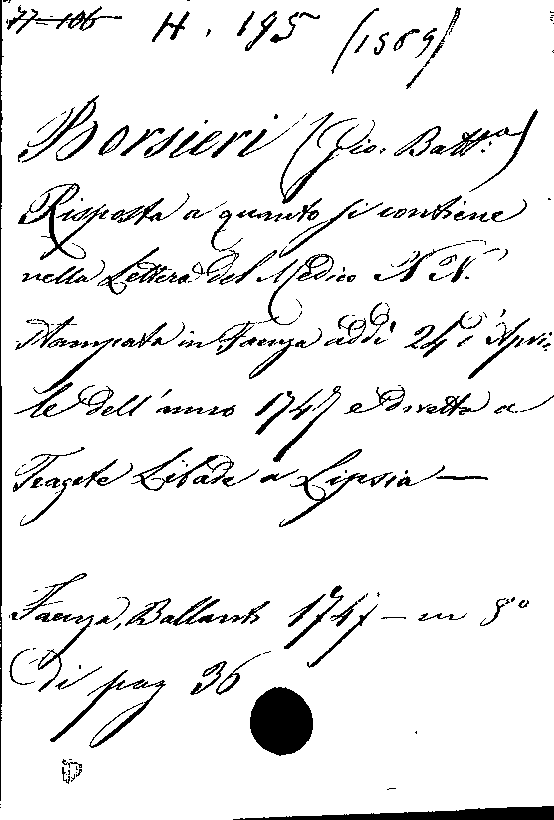 77-106 H. 195 (1589)
Borsieri (Gio. Batt.a)
Risposta a quanto si contiene
nella Lettera del Medico N N.
stampata in Faenza addì 24 d'Apri-
le dell'anno 1747 e diretta a
Teagete Libade a Lipsia —
Faenza, Ballanti 1747 - in 8°
Di pag 36